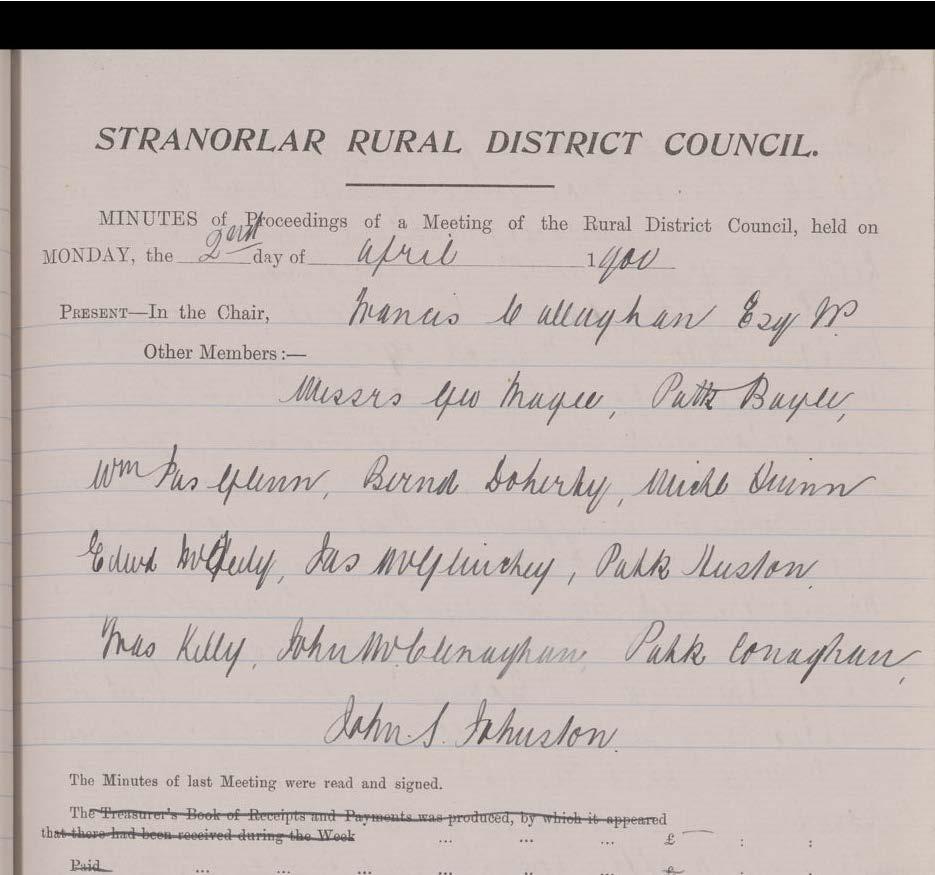 STRANORLAR RURAL DISTRICT COUNCIL.
MINUTES of Proceedings of a Meeting of the Rural District Council, held on
MONDAY, the 2nd day of April 1900
PRESENT—In the Chair, Francis Callaghan Esq JP
Other Members:—
Messrs Geo Magee, Patk Boyle,
Wm Jas Glenn, Bernd Doherty, Michl Quinn
Edwd McFeely, Jas McGlinchey, Patk Huston,
Thos Kelly, John McClenaghan, Patk Conaghan,
John S. Johnston.
The Minutes of last Meeting were read and signed.
The Treasurer's Book of Receipts and Payments was produced, by which it appeared
that there had been received during the Week ... ... ... £ : :
Paid ... ... ... ... ... £ : :